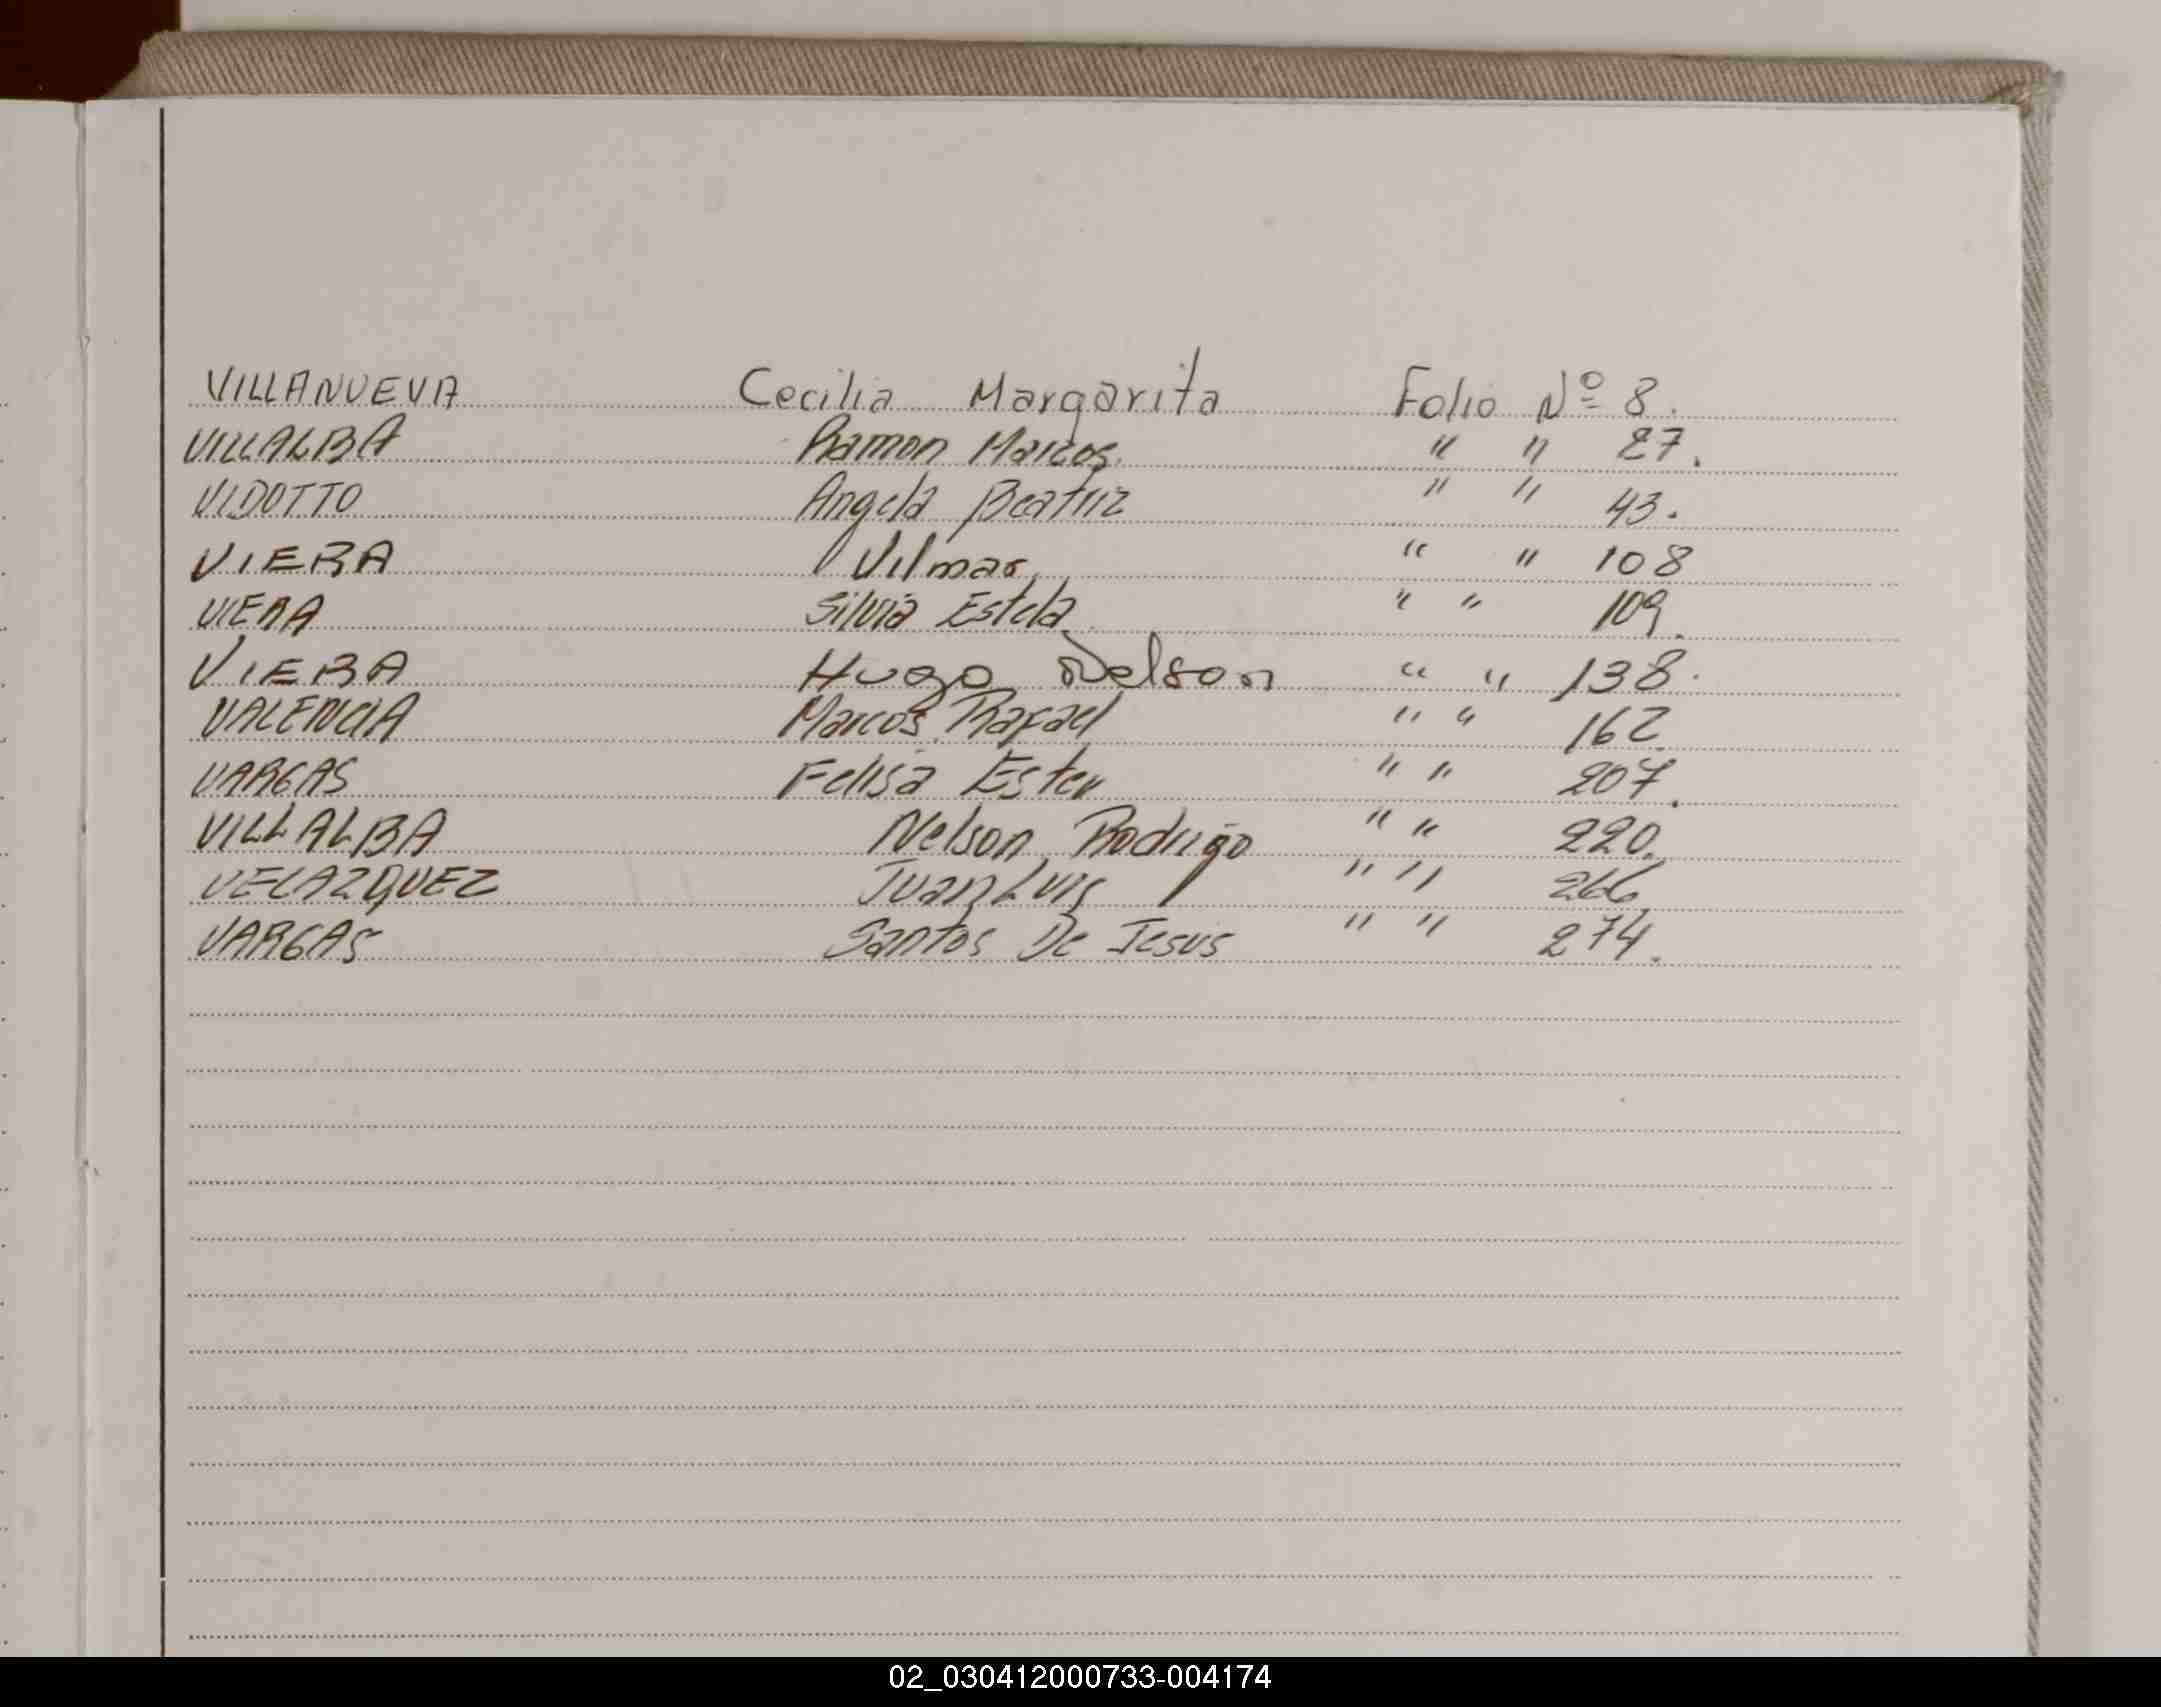 VILLANUEVA Cecilia Margarita Folio Nº 8.
VILLALBA Ramon Marcos. " " 27.
VIDOTTO Angela Beatriz " " 43.
VIERA Vilmar " " 108
VIERA Silvia Estela " " 109.
VIERA Hugo Nelson " " 138.
VALENCIA Marcos Rafael " " 162
VARGAS Felisa Ester " " 207.
VILLALBA Nelson Rodrigo " " 220.
VELAZQUEZ Juan Luis " " 266.
VARGAS Santos De Jesus " " 274.
02_030412000733-004174